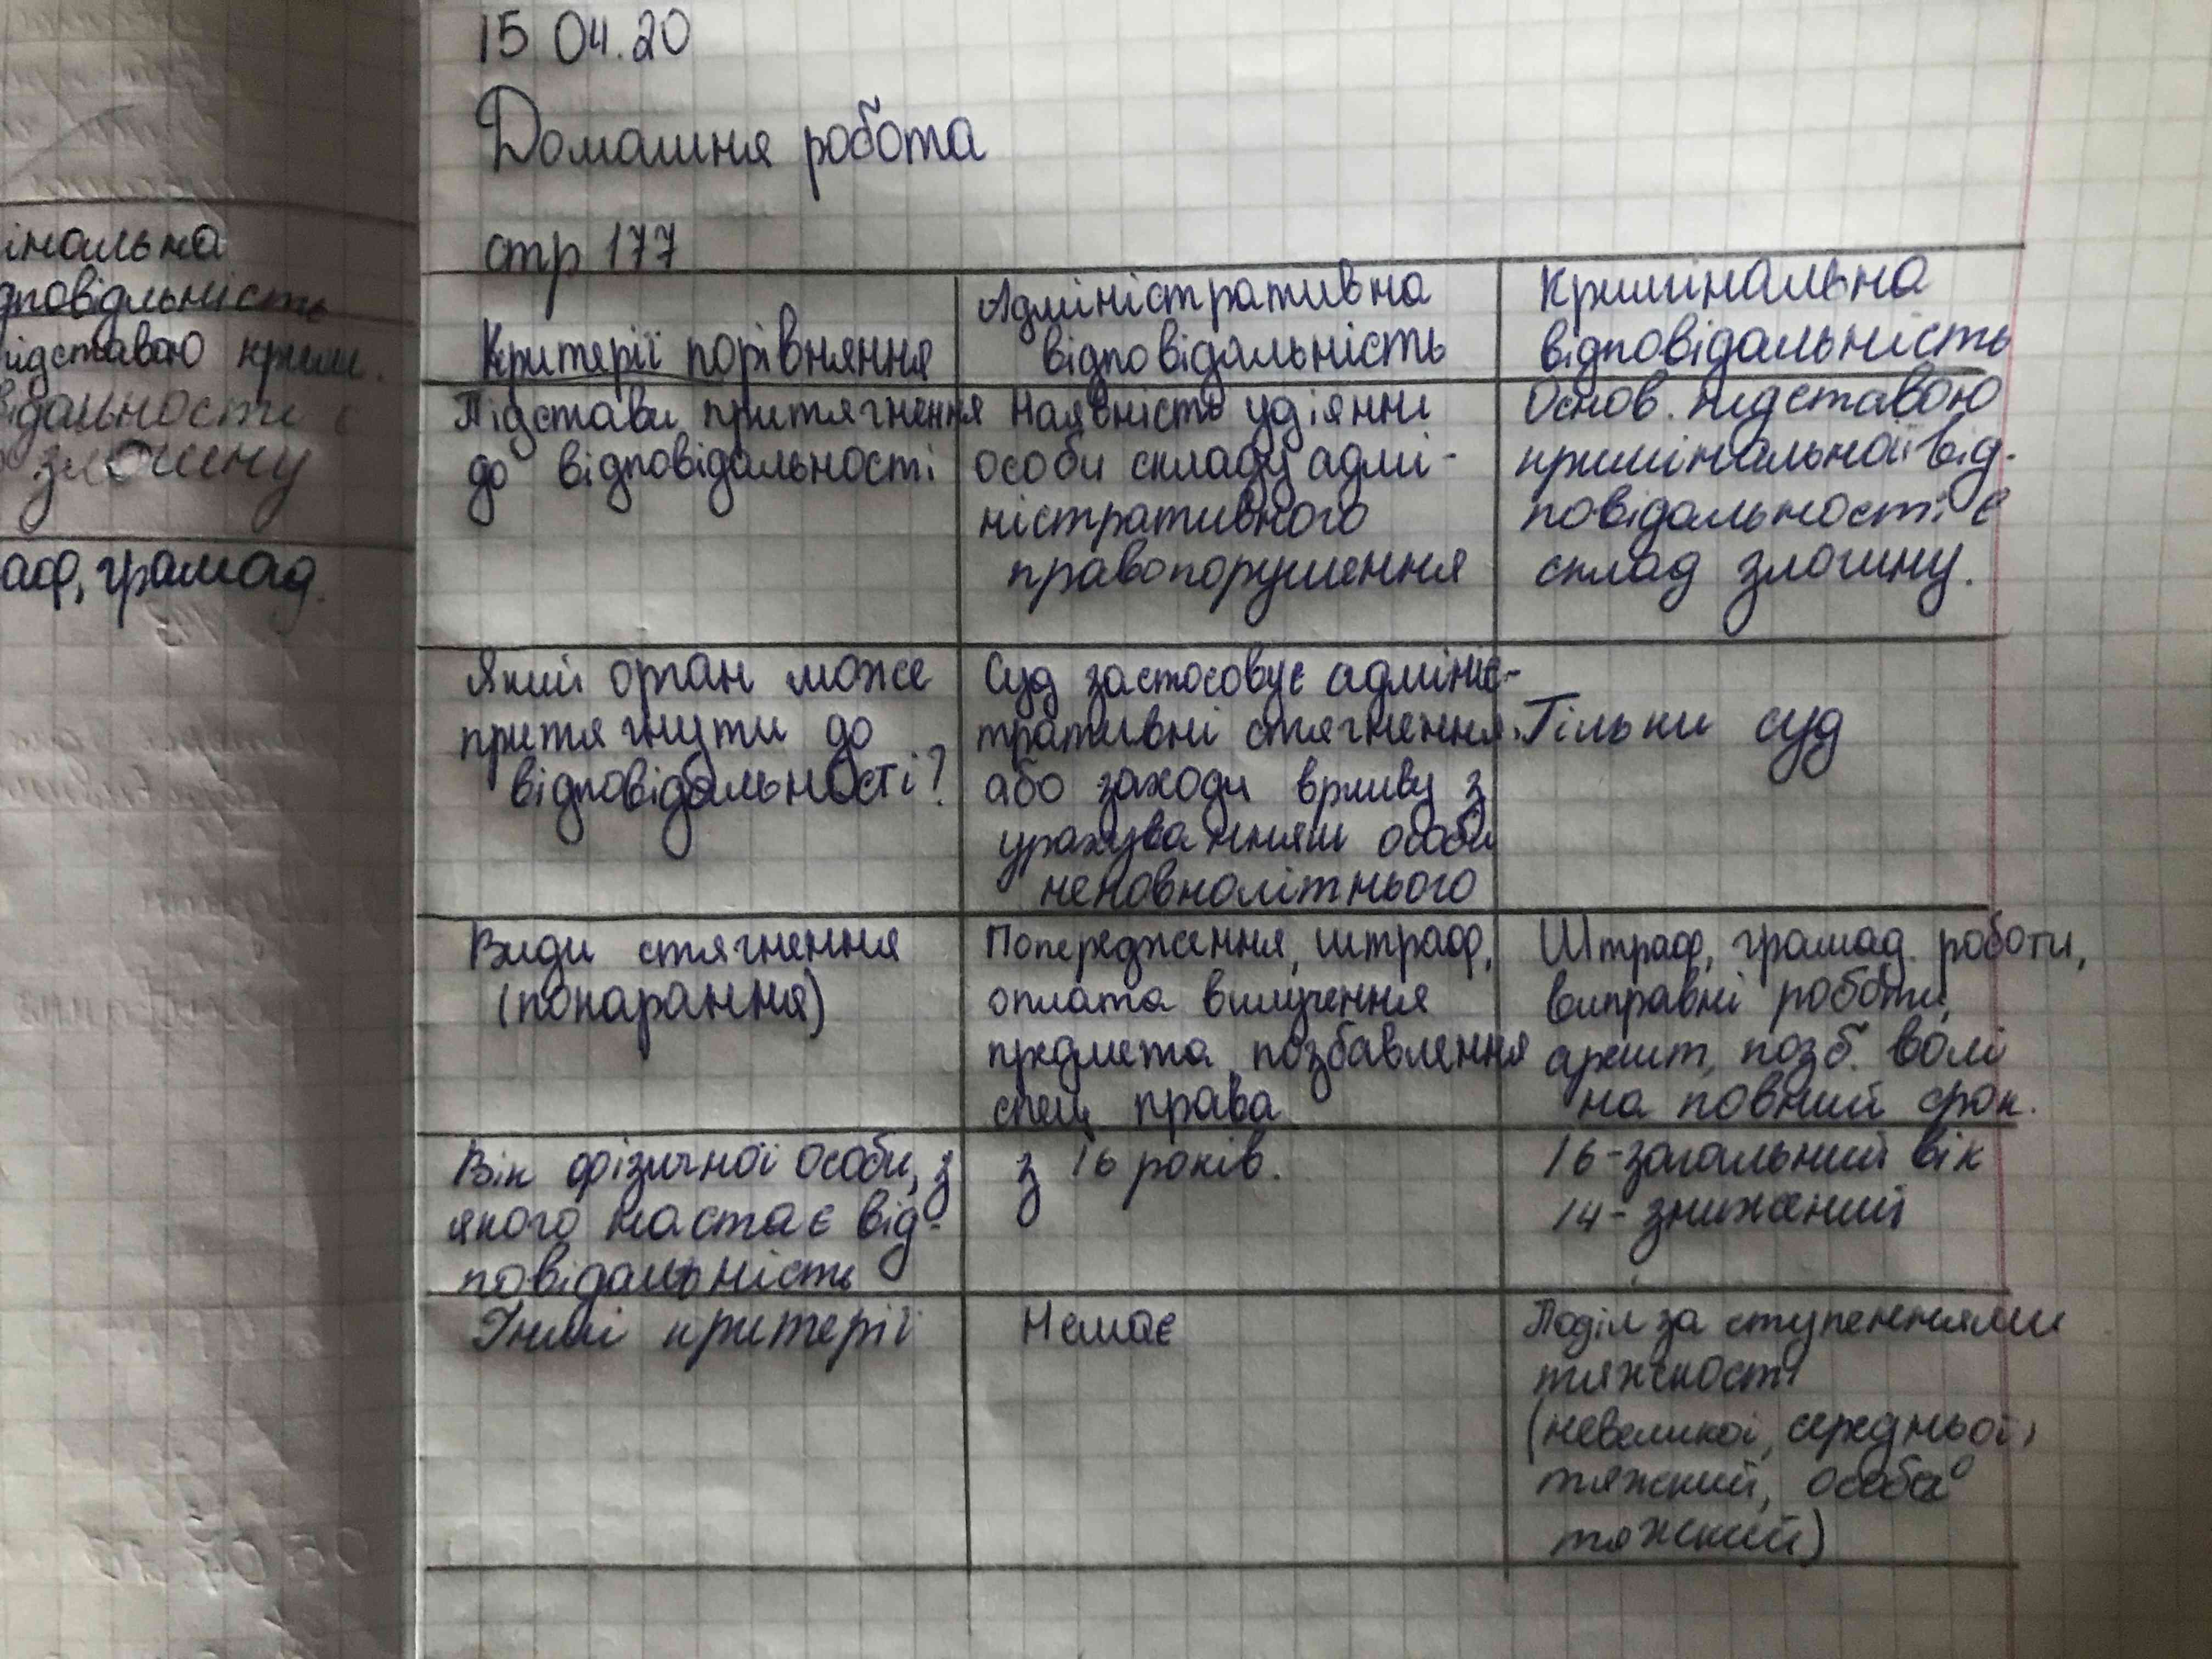 15 04.20
Домашня робота
стр 177
інальна
дповідальність
підставою крим.
відальності є
злочину
аф, грамад.
Критерії порівняння
Адміністративна
відповідальність
Кримінальна
відповідальність
Підстави притягнення
до відповідальності
Наявність удіянні
особи складу адмі-
ністративного
правопорушення
Основ. підставою
кримінальної від-
повідальності є
склад злочину.
Який орган може
притягнути до
відповідальності?
Суд застосовує адмініс-
тративні стягнення,
або заходи впливу з
урахуванням особи
неповнолітнього
Тільки суд
Види стягнення
(покарання)
Попередження, штраф,
оплата вилучення
предмета, позбавлення
спец права
Штраф, грамад. роботи,
виправні роботи,
арешт, позб. волі
на повний срок.
Вік фізичної особи, з
якого настає від-
повідальність
з 16 років.
16-загальний вік
14-знижений
Інші критерії
Немає
Поділ за ступеннями
тяжкості
(невеликої, середньої,
тяжкий, особа
тяжкий)